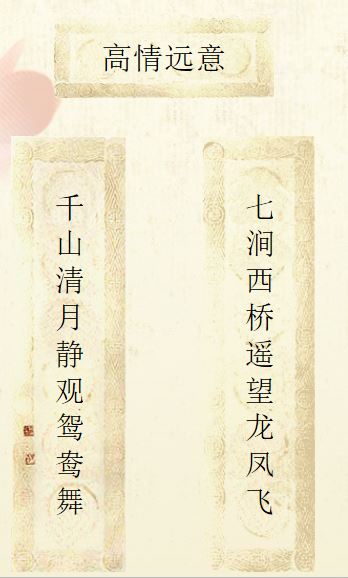 高情远意
千山清月静观鸳鸯舞
七涧西桥遥望龙凤飞